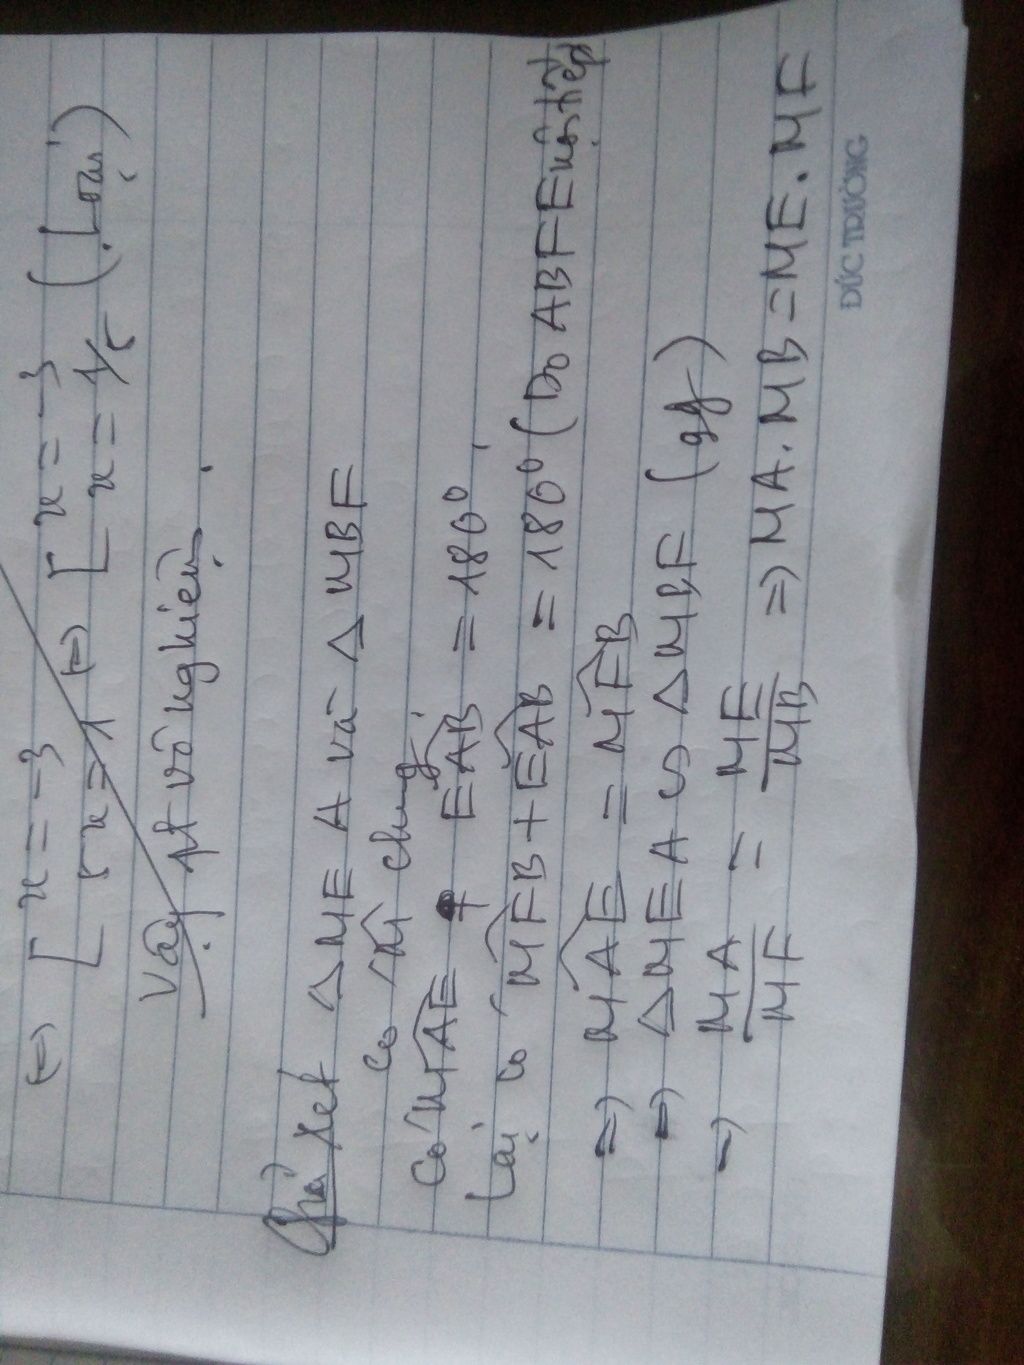 ⇔ [ x = -3
[ 5x = 1 ⇔ [ x = -3
[ x = 1/5 (Loại)
Vậy pt vô nghiệm.
xét △MEA và △MBF
có M̂ chung
Có M̂AE + ÊAB = 180°
Lại có M̂FB + ÊAB = 180° (Do ABFE nội tiếp
⇒ M̂AE = M̂FB
⇒ △MEA ∽ △MBF (gg)
⇒ MA/MF = ME/MB ⇒ MA.MB = ME.MF
ĐỨC TRƯỜNG